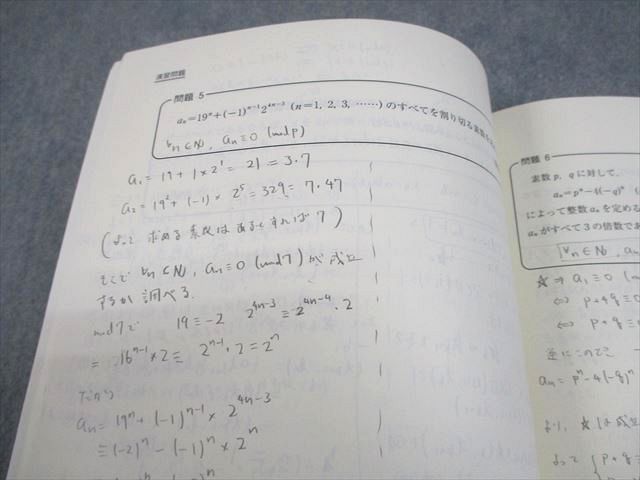 演習問題
問題 5
aₙ=19ⁿ+(-1)ⁿ⁻¹2⁴ⁿ⁻³ (n=1, 2, 3, ……) のすべてを割り切る素数を
∀n∈ℕ, aₙ≡0 (mod p)
a₁ = 19 + 1×2¹ = 21 = 3・7
a₂ = 19² + (-1)× 2⁵ = 329 = 7・47
(よって 求める素数はあるとすれば 7)
そこで ∀n∈ℕ, aₙ≡0 (mod 7) が成立
するか 調べる.
mod 7で 19≡-2 2⁴ⁿ⁻³ ≡ 2⁴ⁿ⁻⁴・2
= 16ⁿ⁻¹×2 ≡ 2ⁿ⁻¹・2 = 2ⁿ
だから
aₙ = 19ⁿ + (-1)ⁿ⁻¹ × 2⁴ⁿ⁻³
≡ (-2)ⁿ - (-1)ⁿ × 2ⁿ
問題 6
素数 p, q に対して,
aₙ=pⁿ-4(-q)ⁿ
によって整数 aₙ を定める
aₙ がすべて 3 の倍数であ
∀n∈ℕ, aₙ
☆ ⇒ a₁≡0
⇔ p+4q≡0
⇔ p+q≡
逆にこのとき
aₙ = pⁿ-4(-q)ⁿ
より, ☆は成
よって